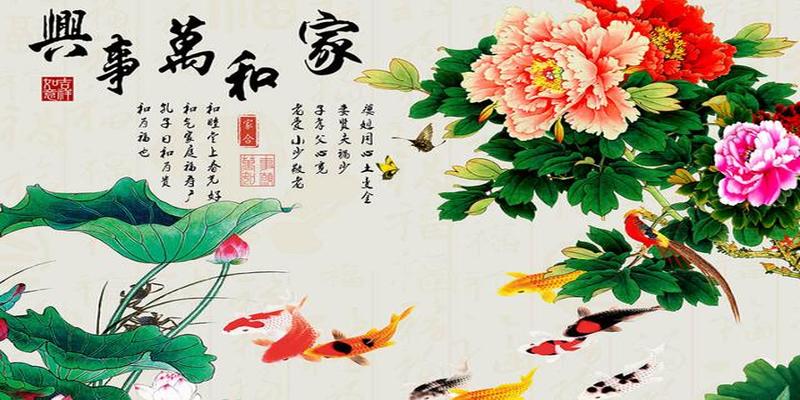 家和萬事興
吉祥如意
婆媳同心土变金
妻贤夫祸少
子孝父心宽
老爱小少敬老
家合
和睦堂上春光好
和气家庭福寿广
孔子曰和为贵
和为福也